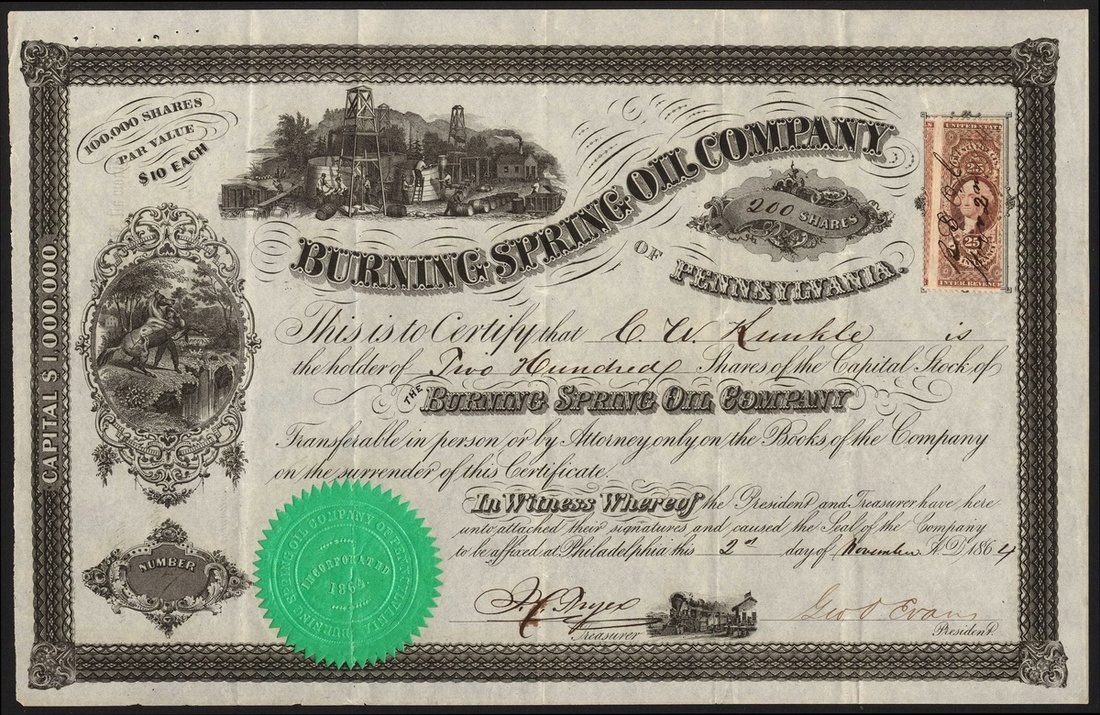 100,000 SHARES
PAR VALUE
$10 EACH
BURNING SPRING OIL COMPANY
200 SHARES
OF PENNSYLVANIA.
UNITED STATES
25
INTER. REVENUE
CAPITAL $1000000.
This is to Certify that C. W. Kunkle is
the holder of Two Hundred Shares of the Capital Stock of
THE BURNING SPRING OIL COMPANY
Transferable in person or by Attorney only on the Books of the Company
on the surrender of this Certificate.
In Witness Whereof the President and Treasurer have here
unto attached their signatures and caused the Seal of the Company
to be affixed at Philadelphia this 2nd day of November A.D. 1864
NUMBER
7
BURNING SPRING OIL COMPANY OF PENNSYLVANIA
INCORPORATED
1864.
Treasurer
Geo. Evans
President